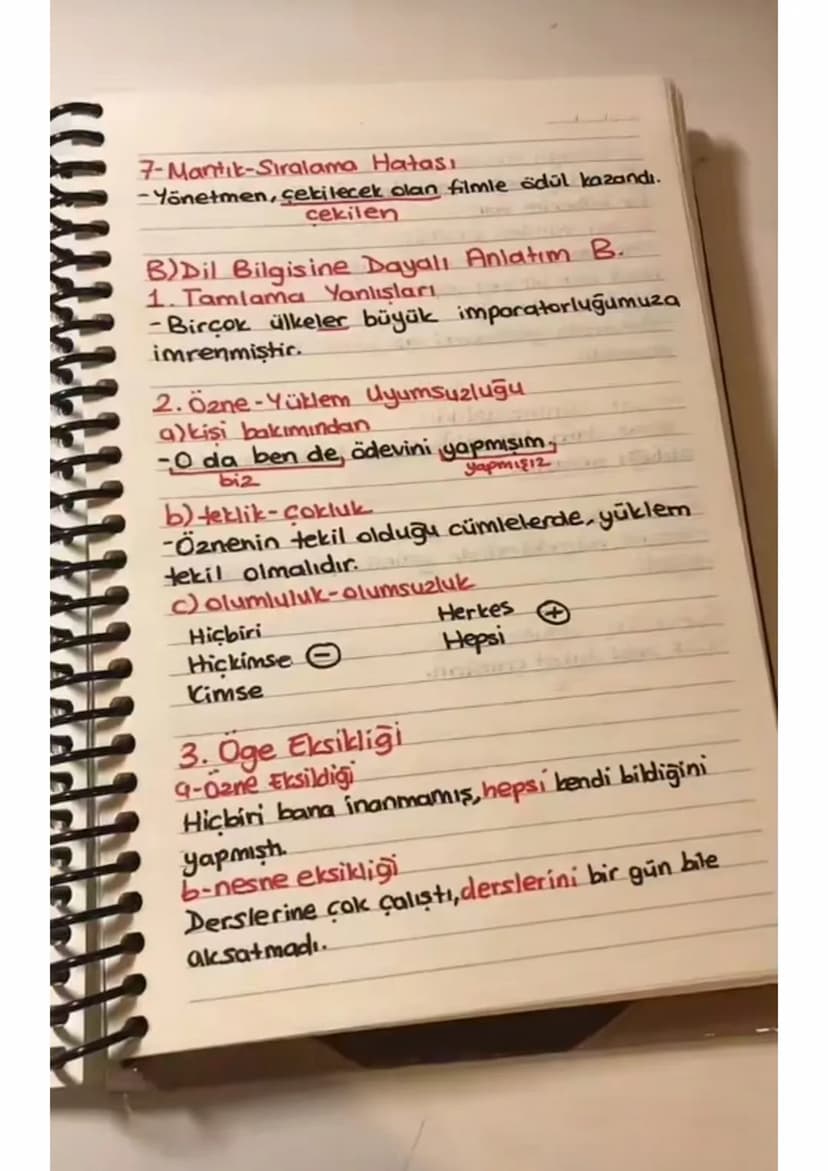 7-Mantık-Sıralama Hatası
-Yönetmen, çekilecek olan filmle ödül kazandı.
çekilen
B)Dil Bilgisine Dayalı Anlatım B.
1. Tamlama Yanlışları
-Birçok ülkeler büyük imparatorluğumuza
imrenmiştir.
2. Özne-Yüklem Uyumsuzluğu
a)kişi bakımından
-O da ben de, ödevini yapmışım.
biz yapmışız
b)teklik-çokluk
-Öznenin tekil olduğu cümlelerde, yüklem
tekil olmalıdır.
c)olumluluk-olumsuzluk
Hiçbiri Herkes +
Hiçkimse - Hepsi
Kimse
3. Öge Eksikliği
a-Özne Eksildiği
Hiçbiri bana inanmamış, hepsi kendi bildiğini
yapmıştı.
b-nesne eksikliği
Derslerine çok çalıştı, derslerini bir gün bile
aksatmadı.